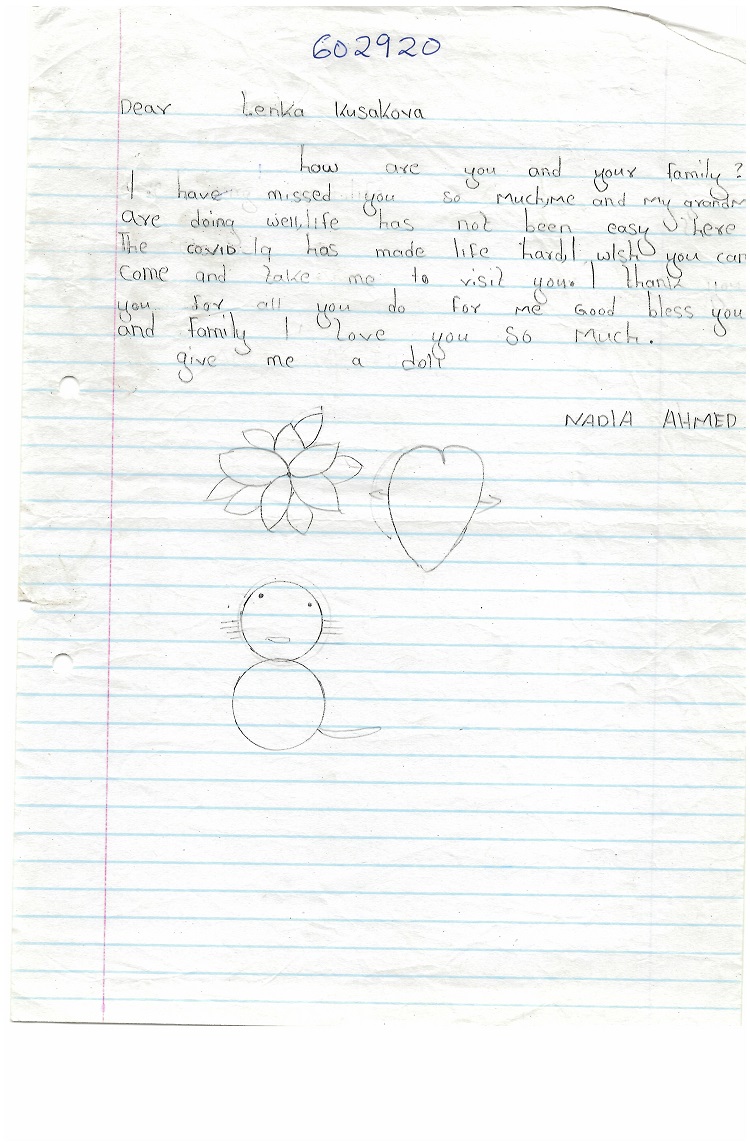 602920
Dear Lenka Kusakova
how are you and your family?
I have missed you so much,me and my grandm
are doing well,life has not been easy here
The covid 19 has made life hard,I wish you can
come and take me to visit you. I thank
you for all you do for me Good bless you
and family I love you so much.
give me a doll
NADIA AHMED